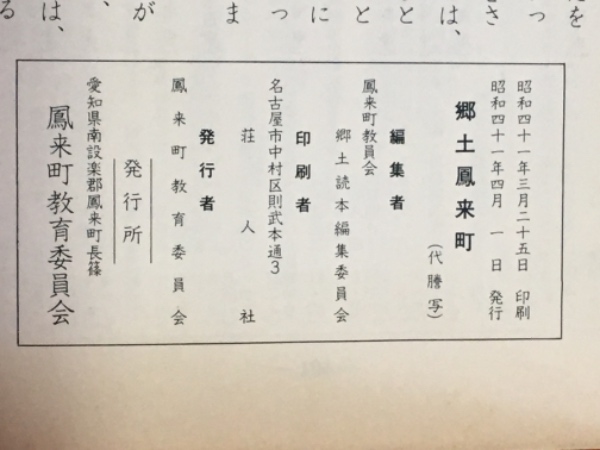 をさっ
さ
は、
と
と
に
っ
ま
が
、
は、
る
昭和四十一年三月二十五日 印刷
昭和四十一年四月 一 日 発行
郷土鳳来町
(代謄写)
編集者
鳳来町教員会
郷土読本編集委員会
印刷者
名古屋市中村区則武本通3
荘人社
発行者
鳳来町教育委員会
発行所
愛知県南設楽郡鳳来町長篠
鳳来町教育委員会